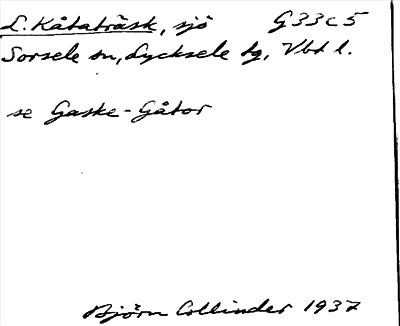 L. Kåtaträsk, sjö G33c5
Sorsele sn, Lycksele tg, Vbt l.
se Gaske-Gåtor
Björn Collinder 1937